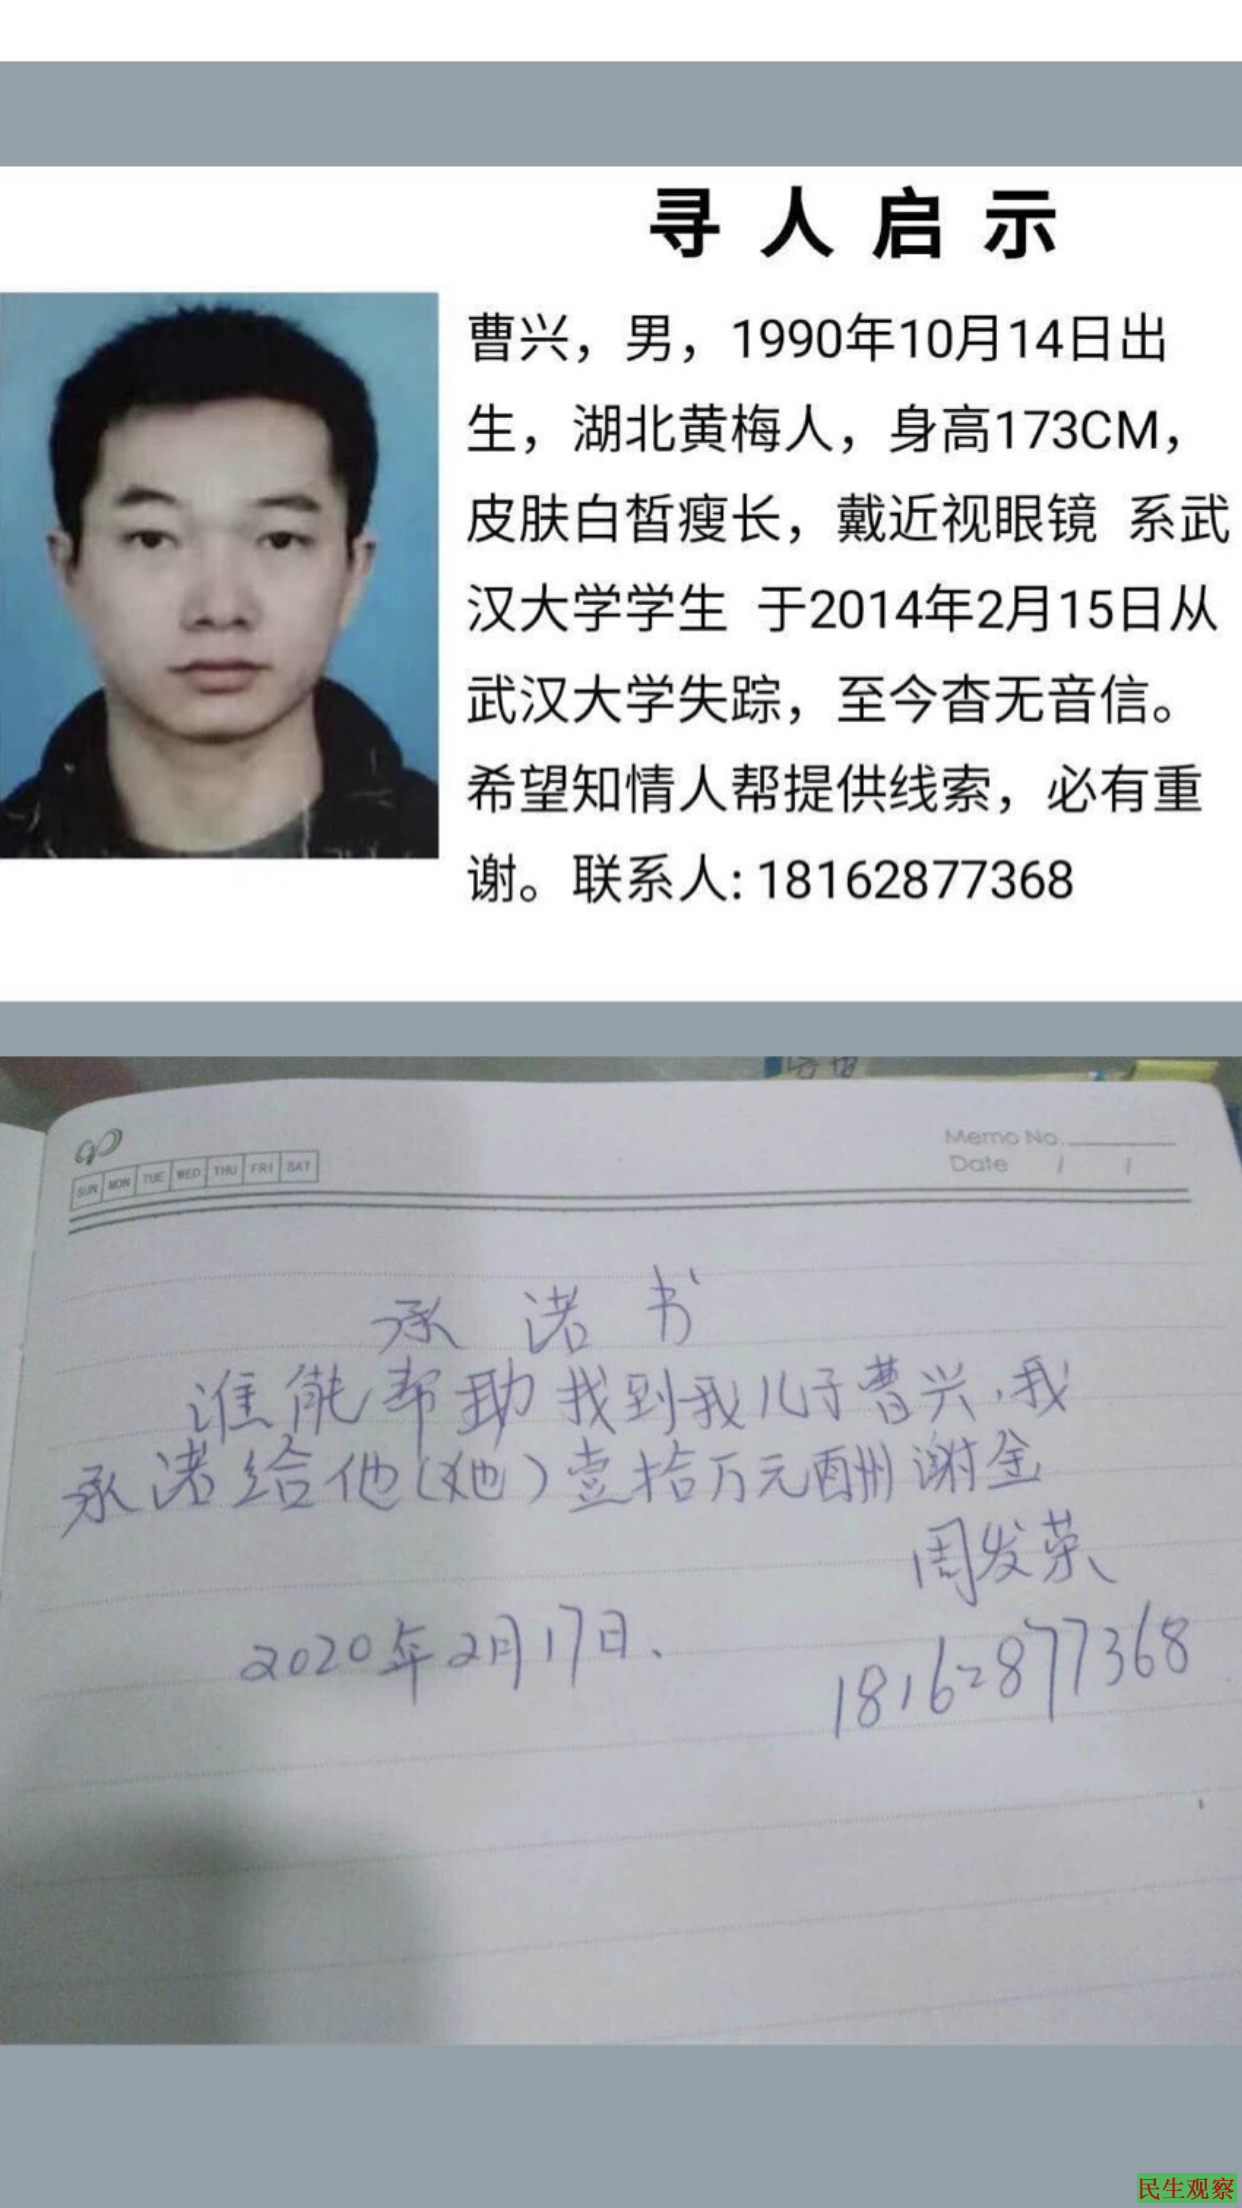 寻人启示
曹兴，男，1990年10月14日出
生，湖北黄梅人，身高173CM，
皮肤白皙瘦长，戴近视眼镜 系武
汉大学学生 于2014年2月15日从
武汉大学失踪，至今杳无音信。
希望知情人帮提供线索，必有重
谢。联系人: 18162877368
Memo No.
Date / /
SUN MON TUE WED THU FRI SAT
承诺书
谁能帮助找到我儿子曹兴，我
承诺给他（她）壹拾万元酬谢金
周发荣
2020年2月17日.
18162877368
民生观察